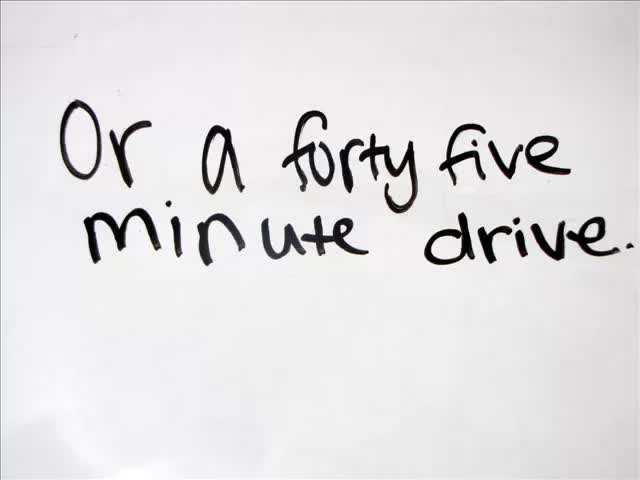 Or a forty five
minute drive.